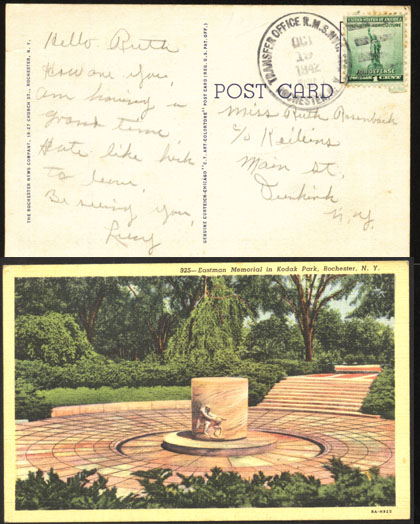 Hello Ruth
How are you,
am having a
grand time
Hate like heck
to leave,
Be seeing you,
Lucy
THE ROCHESTER NEWS COMPANY, 19-27 CHURCH ST., ROCHESTER, N. Y.
GENUINE CURTEICH-CHICAGO "C.T. ART-COLORTONE" POST CARD (REG. U.S. PAT. OFF.)
TRANSFER OFFICE R.M.S.
OCT
19
1942
ROCHESTER
UNITED STATES OF AMERICA
FOR DEFENSE
1 CENT
POST CARD
Miss Ruth
c/o
Main St.
Dunkirk
N.Y.
925—Eastman Memorial in Kodak Park, Rochester, N. Y.